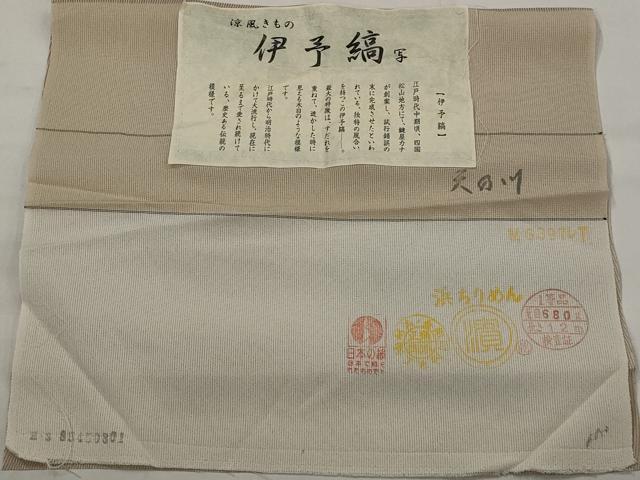 涼風きもの
伊予縞 写
【伊予縞】
江戸時代中期頃、四国
松山地方にて、鍵屋カナ
が創案し、試行錯誤の
末に完成させたといわ
れている、独特の風合い
を持つこの伊予縞――。
最大の特徴は、すだれを
重ねて、透かした時に
見える木目のような模様
です。
江戸時代から明治時代に
かけて大流行し、現在に
至るまで愛され続けて
いる、歴史ある伝統の
模様です。
天の川
浜ちりめん
1等品
680g
長さ 12m
検査証
日本の絹
濱